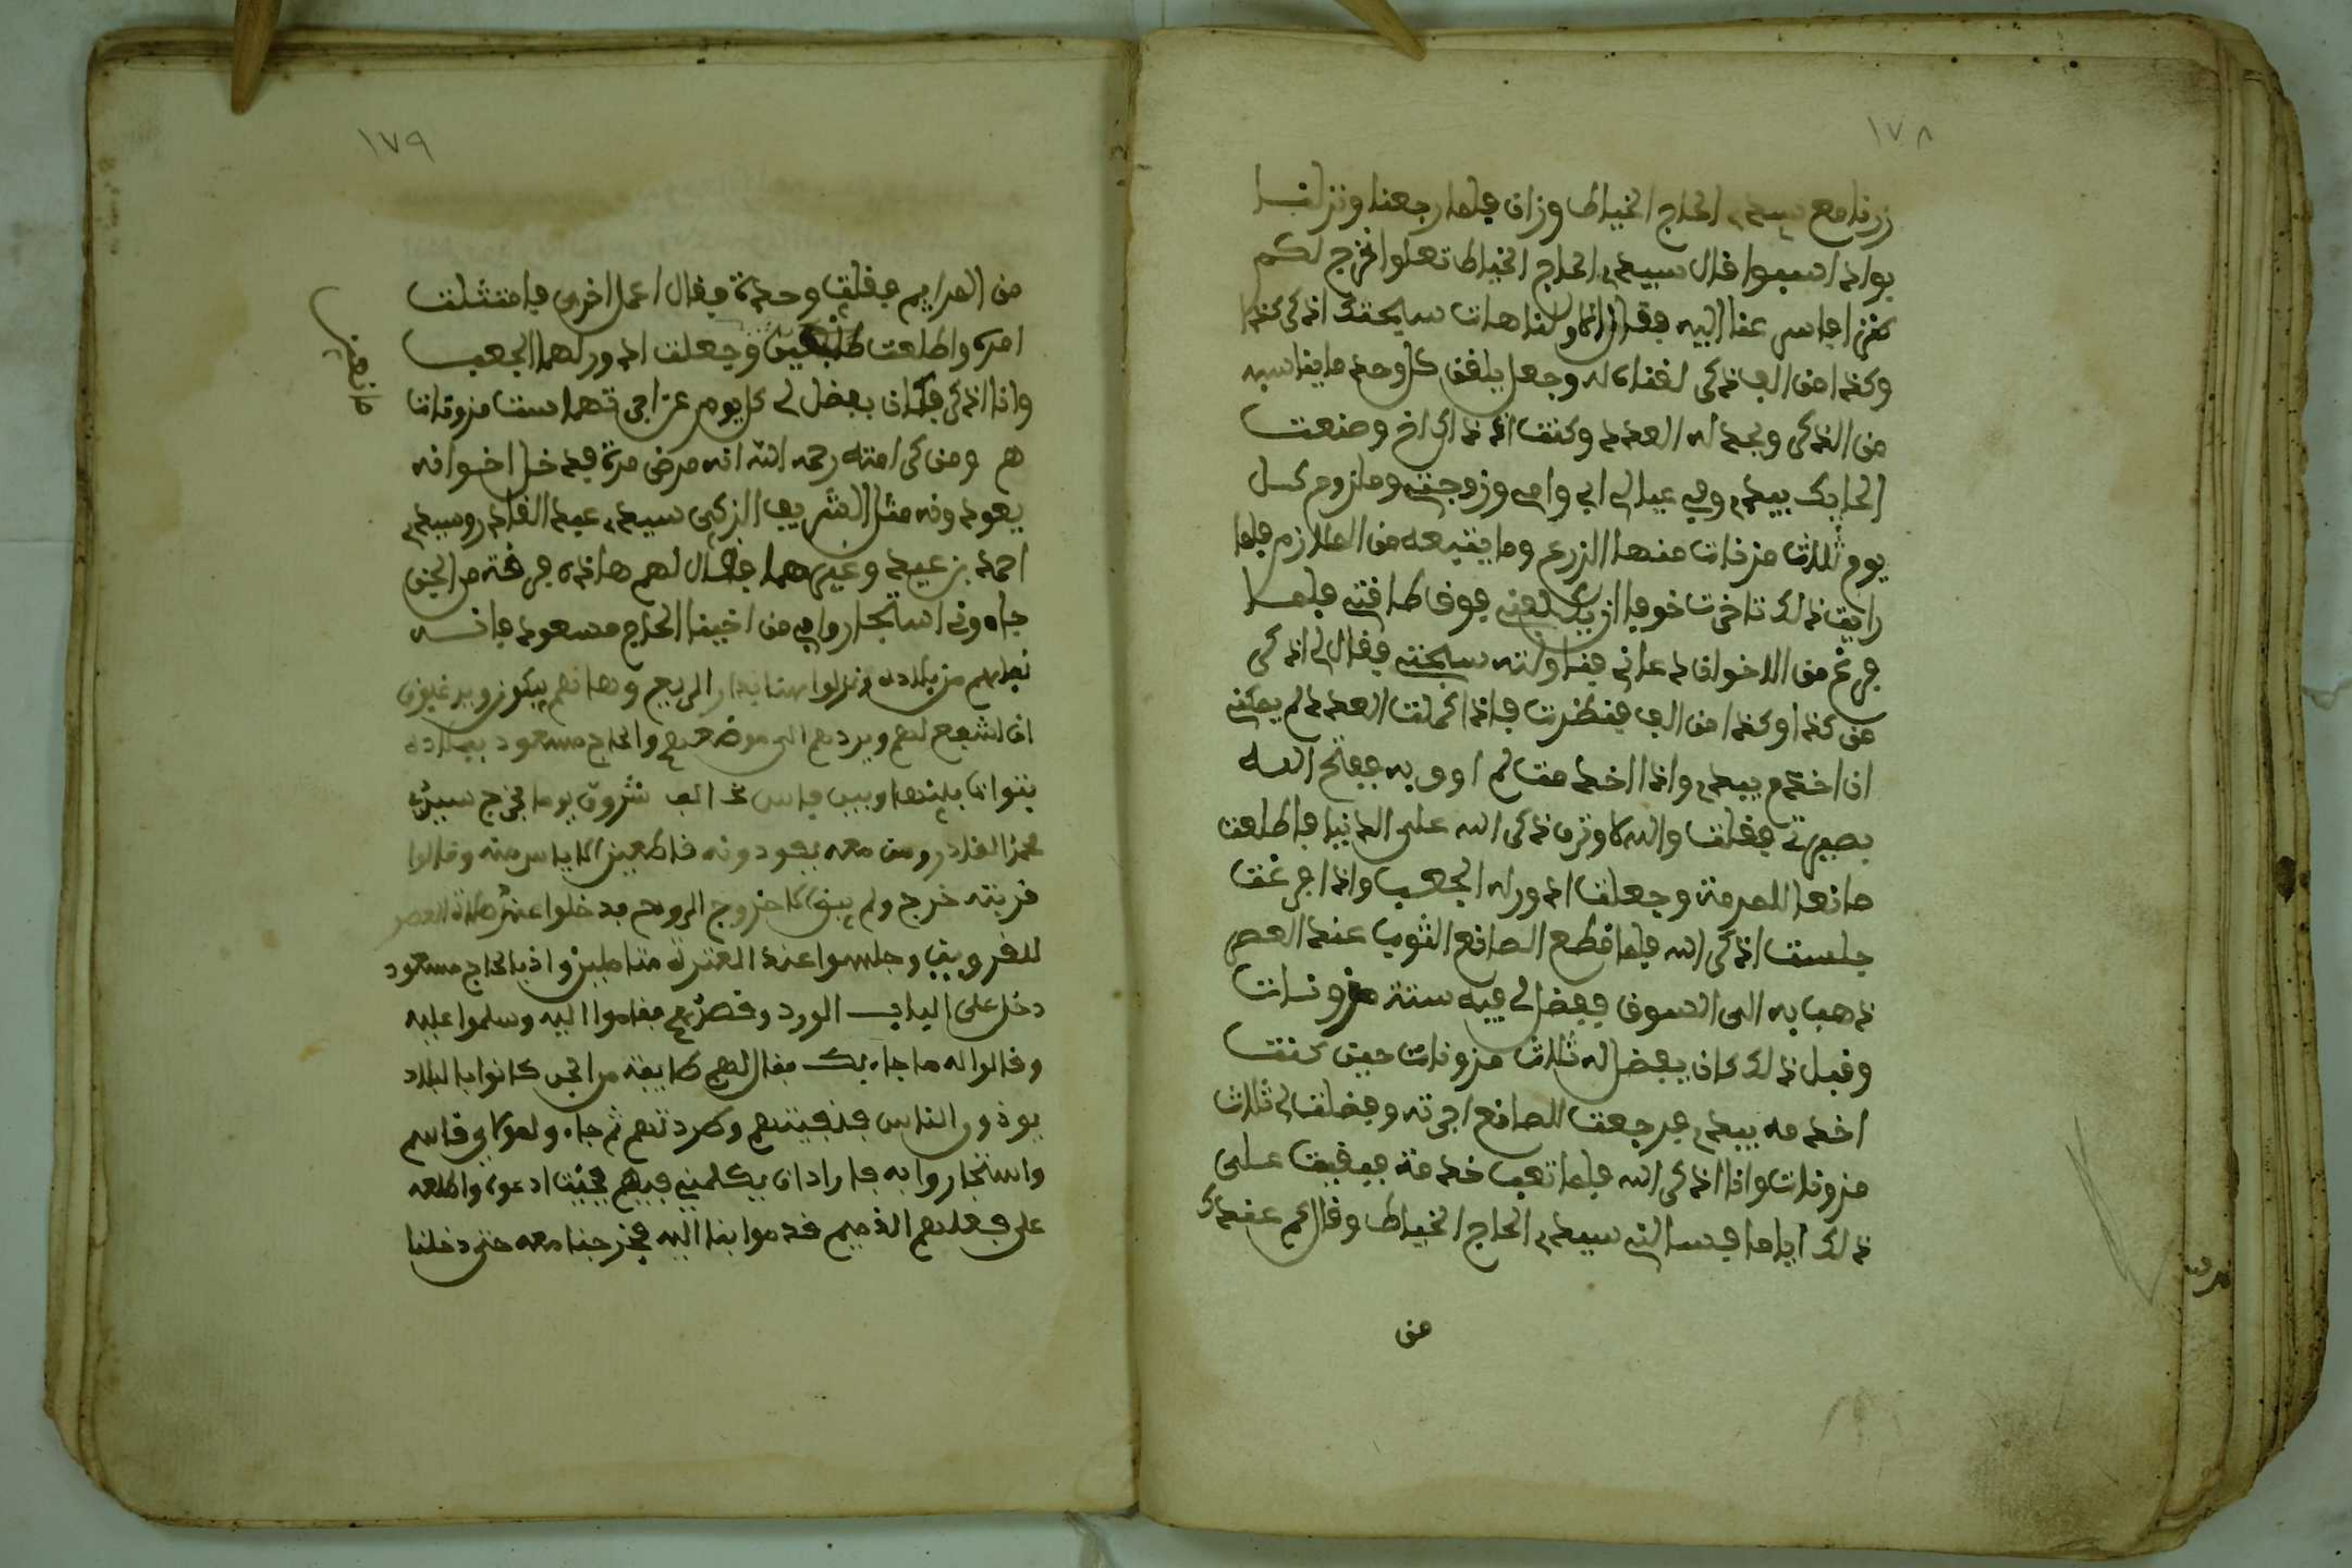 ١٧٨
زرنا مع سيدي الحاج الخياط وزان فلما رجعنا ونزلنا
بواد اسبوا قال سيدي الحاج الخياط تعلوا نخرج لكم
كنزا فاس عنا اليه فقال انا ولنا هات سبحتك اذكر كذا
وكذا من الف ذكر لقناه له وجعل يلقن كل وحد ما يناسبه
من الذكر ويحد له العدد وكنت اذ ذاك اخدم صنعت
الحايك بيدي وفي عيالي ابي وامي وزوجتي وملزوم كل
يوم ثلاث مزنات منها الزرع وما يتبعه من اللوازم فلما
رايت ذلك تاخرت خوفا ان يكلفني فوق طاقتي فلما
فرغ من الاخوان دعاني فناولته سبحتي فقال لي اذكر
من كذا وكذا من الف فنظرت فاذا كملت العدد لم يمكني
ان اخدم بيدي واذا اخدمت لم اوف به ففتح الله
بصيرتي فقلت والله لاوثرن ذكر الله على الدنيا فاطلعت
صانعا للمرمة وجعلت ادور له الجعب واذا فرغت
جلست اذكر الله فلما قطع الصانع الثوب عند العصر
ذهب به الى السوق ففضل لي فيه ستة مزونات
وقبل ذلك كان يفضل له ثلاث مزونات حين كنت
اخدمه بيدي فرجعت للصانع اجرته وفضلت لي ثلاث
مزونات وانا اذكر الله فلم اتعب خدمة فبقيت على
ذلك اياما فسالني سيدي الحاج الخياط وقال كم عندك
من
١٧٩
من المرايم فقلت وحدة فقال اعمل اخرى فامتثلت
امره واطلعت صانعين وجعلت ادور لهما الجعب
وانا اذكر فكان يفضل لي كل يوم عن اجرتهما ست مزونات
هم ومن كرامته رحمه الله انه مرض مرة فدخل اخوانه
يعودونه مثل الشريف الزكي سيدي عبد القادر وسيدي
احمد بن عبد وغيرهما فقال لهم هاذه فرقة من الجن
جاءوني استجاروا بي من اخينا الحاج مسعود فانه
نفاهم من بلاده ونزلوا هنا بدار الربيع وها هم يبكون ويرغبون
ان اشفع لهم ويردهم الى موضعهم والحاج مسعود ببلاده
بتوات بينها وبين فاس نحو الف شروق يوما فخرج سيدي
عبد القادر ومن معه يعودونه قاطعين الاياس منه وقالوا
قربته خرج ولم يبق الا خروج الروح فدخلوا عند صلاة العصر
للقرويين وجلسوا عند العنزة متاملين واذا بالحاج مسعود
دخل على الباب الورد وقصدهم فقاموا اليه وسلموا عليه
وقالوا له ما جاء بك فقال لهم طايفة من الجن كانوا بالبلاد
يوذون الناس فنفيتهم وطردتهم ثم جاءوا لمولاي قاسم
واستجاروا به فاراد ان يكلمني فيهم فجئت ادعوه واطلعه
على فعلهم الذميم قدموا بنا اليه فخرجنا معه حتى دخلنا